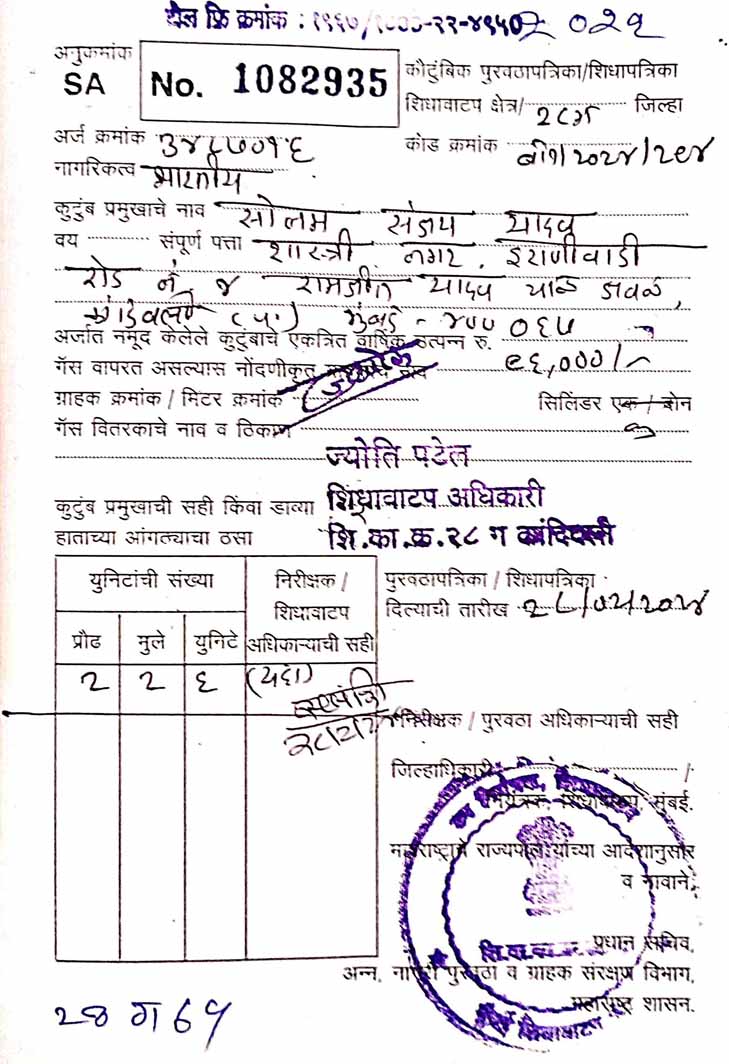 टोल फ्रि क्रमांक : १९६७/१८००-२२-४९५०
अनुक्रमांक
SA No. 1082935
कौटुंबिक पुरवठापत्रिका/शिधापत्रिका
शिधावाटप क्षेत्र/ २८ग जिल्हा
अर्ज क्रमांक ३४८७०१६ कोड क्रमांक
नागरिकत्व भारतीय
कुटुंब प्रमुखाचे नाव सोलम संजय यादव
वय संपूर्ण पत्ता शास्त्री नगर, इराणीवाडी
रोड नं ४ रामजीत यादव चाळ जवळ,
कांदिवली (प.) मुंबई - ४०० ०६७
अर्जात नमूद केलेले कुटुंबाचे एकत्रित वार्षिक उत्पन्न रु. ९६,०००/-
गॅस वापरत असल्यास नोंदणीकृत
ग्राहक क्रमांक / मिटर क्रमांक सिलिंडर एक / दोन
गॅस वितरकाचे नाव व ठिकाण
ज्योति पटेल
कुटुंब प्रमुखाची सही किंवा डाव्या शिधावाटप अधिकारी
हाताच्या आंगठ्याचा ठसा शि.का.क्र.२८ ग कांदिवली
युनिटांची संख्या
निरीक्षक / शिधावाटप अधिकाऱ्याची सही
प्रौढ मुले युनिटे
२ २ ६
पुरवठापत्रिका / शिधापत्रिका
दिल्याची तारीख २८/०२/२०२४
निरीक्षक / पुरवठा अधिकाऱ्याची सही
जिल्हाधिकारी /
नियंत्रक, शिधावाटप, मुंबई.
महाराष्ट्राचे राज्यपाल यांच्या आदेशानुसार
व नावाने,
प्रधान सचिव,
अन्न, नागरी पुरवठा व ग्राहक संरक्षण विभाग,
महाराष्ट्र शासन.
२८ ग ६१